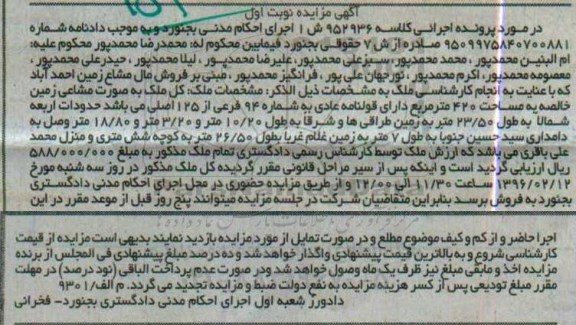 آگهی مزایده نوبت اول
در مورد پرونده اجرائی کلاسه ۹۵۲۹۳۶ ش ۱ اجرای احکام مدنی بجنورد و به موجب دادنامه شماره
۹۵۰۹۹۷۵۸۴۰۷۰۰۸۸۱ صادره از ش ۷ حقوقی بجنورد فیمابین محکوم له: محمدرضا محمدپور محکوم علیه:
ام البنین محمدپور ، محمد محمدپور، سبزعلی محمدپور، علیرضا محمدپور ، لیلا محمدپور ، حیدرعلی محمدپور ،
معصومه محمدپور، اکرم محمدپور ، نورجهان علی پور ، فرانگیز محمدپور ، مبنی بر فروش مال مشاع زمین احمد آباد
که با عنایت به انجام کارشناسی ملک به مشخصات ذیل الذکر: مشخصات ملک: کل ملک به صورت مشاعی زمین
خالصه به مساحت ۴۲۰ مترمربع دارای قولنامه عادی به شماره ۹۴ فرعی از ۱۲۵ اصلی می باشد حدودات اربعه
شمالا به طول ۲۳/۵۰ متر به زمین طراقی ها و شرقا به طول ۱۰/۲۰ متر و ۳/۲۰ متر و ۱۸/۸۰ متر وصل به
دامداری سید حسین جنوبا به طول ۷ متر به زمین غلام غربا بطول ۲۶/۵۰ متر به کوچه شش متری و منزل محمد
علی باقری می باشد که ارزش ملک توسط کارشناس رسمی دادگستری تمام ملک مذکور به مبلغ ۵۸۸/۰۰۰/۰۰۰
ریال ارزیابی گردید است و اینکه پس از سیر مراحل قانونی مقرر گردیده کل ملک مذکور در روز سه شنبه مورخ
۱۳۹۶/۰۲/۱۲ ساعت ۱۱/۳۰ الی ۱۲/۰۰ و از طریق مزایده حضوری در محل اجرای احکام مدنی دادگستری
بجنورد به فروش برسد بنابراین متقاضیان شرکت در جلسه مزایده میتوانند پنج روز قبل از موعد مقرر در این
اجرا حاضر و از کم و کیف موضوع مطلع و در صورت تمایل از مورد مزایده بازدید نمایند بدیهی است مزایده از قیمت
کارشناسی شروع و به بالاترین قیمت پیشنهادی واگذار خواهد شد و ده درصد مبلغ پیشنهادی فی المجلس از برنده
مزایده اخذ و مابقی مبلغ نیز ظرف یک ماه وصول خواهد شد و در صورت عدم پرداخت الباقی (نود درصد) در مهلت
مقرر مبلغ تودیعی پس از کسر هزینه مزایده به نفع دولت ضبط و مزایده تجدید می گردد. م الف/۹۳۰۱
دادورز شعبه اول اجرای احکام مدنی دادگستری بجنورد- فخرانی